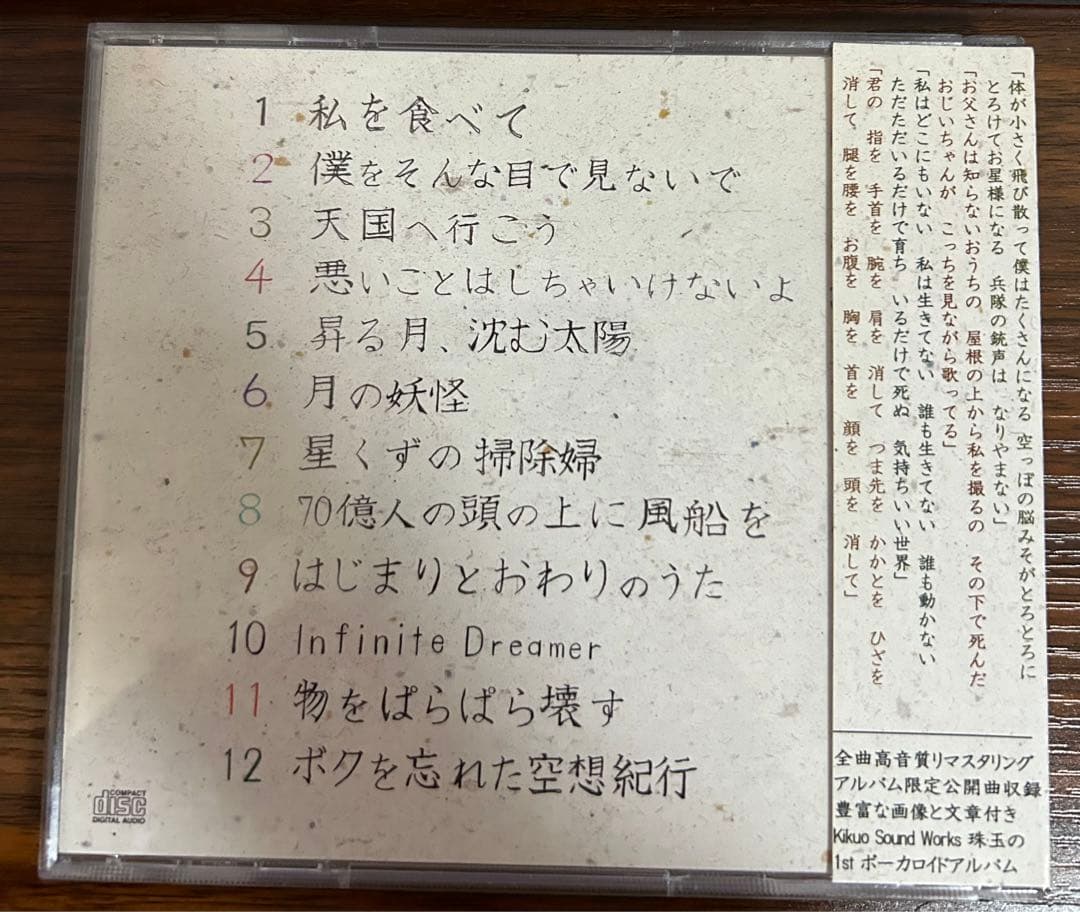 1 私を食べて
2 僕をそんな目で見ないで
3 天国へ行こう
4 悪いことはしちゃいけないよ
5 昇る月、沈む太陽
6 月の妖怪
7 星くずの掃除婦
8 70億人の頭の上に風船を
9 はじまりとおわりのうた
10 Infinite Dreamer
11 物をぱらぱら壊す
12 ボクを忘れた空想紀行
COMPACT
disc
DIGITAL AUDIO
「体が小さく飛び散って僕はたくさんになる 空っぽの脳みそがとろとろに
とろけてお星様になる 兵隊の銃声は なりやまない」
「お父さんは知らないおうちの、屋根の上から私を撮るの その下で死んだ
おじいちゃんが こっちを見ながら歌ってる」
「私はどこにもいない 私は生きてない 誰も生きてない 誰も動かない
ただただいるだけで育ち いるだけで死ぬ 気持ちいい世界」
「君の 指を 手首を 腕を 肩を 消して つま先を かかとを ひざを
消して、腿を腰を お腹を 胸を 首を 顔を 頭を 消して」
全曲高音質リマスタリング
アルバム限定公開曲収録
豊富な画像と文章付き
Kikuo Sound Works 珠玉の
1st ボーカロイドアルバム